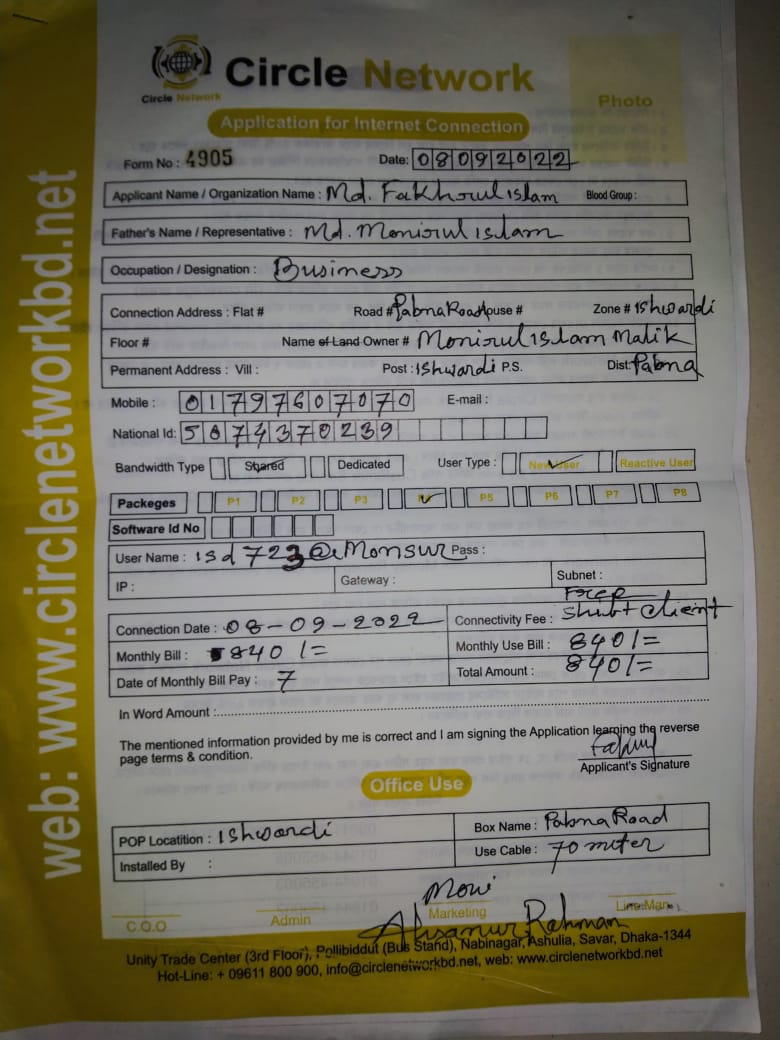 web: www.circlenetworkbd.net
Circle Network
Circle Network
Photo
Application for Internet Connection
Form No : 4905 Date: 08092022
Applicant Name / Organization Name : Md. Fakhrul islam Blood Group :
Father's Name / Representative : Md. Monirul islam
Occupation / Designation : Business
Connection Address : Flat # Road # Pabna Road House # Zone # ishwardi
Floor # Name of Land Owner # Monirul islam Malik
Permanent Address : Vill : Post : ishwardi P.S. Dist: Pabna
Mobile : 01797607070 E-mail :
National Id: 5074370239
Bandwidth Type Shared Dedicated User Type : New User Reactive User
Packeges P1 P2 P3 P4 P5 P6 P7 P8
Software Id No
User Name : isd723@Monsur Pass :
IP : Gateway : Subnet :
Free
Connection Date : 08-09-2022 Connectivity Fee : Shift client
Monthly Bill : 840/= Monthly Use Bill : 840/=
Date of Monthly Bill Pay : 7 Total Amount : 840/=
In Word Amount :
The mentioned information provided by me is correct and I am signing the Application learning the reverse
page terms & condition.
Applicant's Signature
Office Use
POP Locatition : ishwardi Box Name : Pabna Road
Installed By : Use Cable : 70 miter
Moni
C.O.O Admin Marketing Line Man
Ahsanur Rahman
Unity Trade Center (3rd Floor), Pollibiddut (Bus Stand), Nabinagar, Ashulia, Savar, Dhaka-1344
Hot-Line: + 09611 800 900, info@circlenetworkbd.net, web: www.circlenetworkbd.net